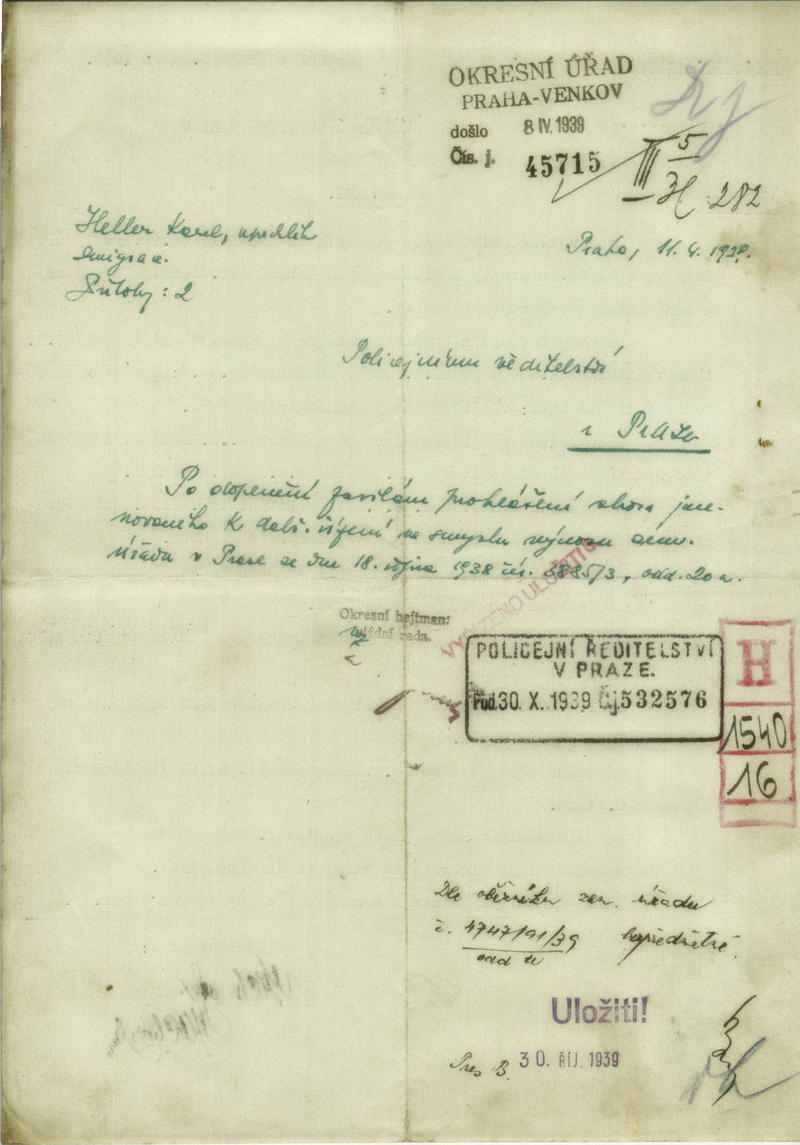 OKRESNÍ ÚŘAD
PRAHA-VENKOV
došlo 8 IV. 1939
Čís. j. 45715
III 5
282
Heller Karel, uprchlík
emigrace.
Přílohy: 2
Praha, 11. 4. 1939.
Policejnímu ředitelství
v Praze
Po doplnění zasílám prohlášení shora jme-
novaného k dalš. řízení ve smyslu výnosu zem.
úřadu v Praze ze dne 18. října 1938 čís. 3885/3, odd. 20 a.
Okresní hejtman:
rada.
POLICEJNÍ ŘEDITELSTVÍ
V PRAZE.
Pod. 30. X. 1939 Čj. 532576
H
1540
16
Dle oběžníku zem. úřadu
č. 4747/91/39 bezpředmětné.
odd
Uložiti!
Pres B. 30. ŘÍJ. 1939